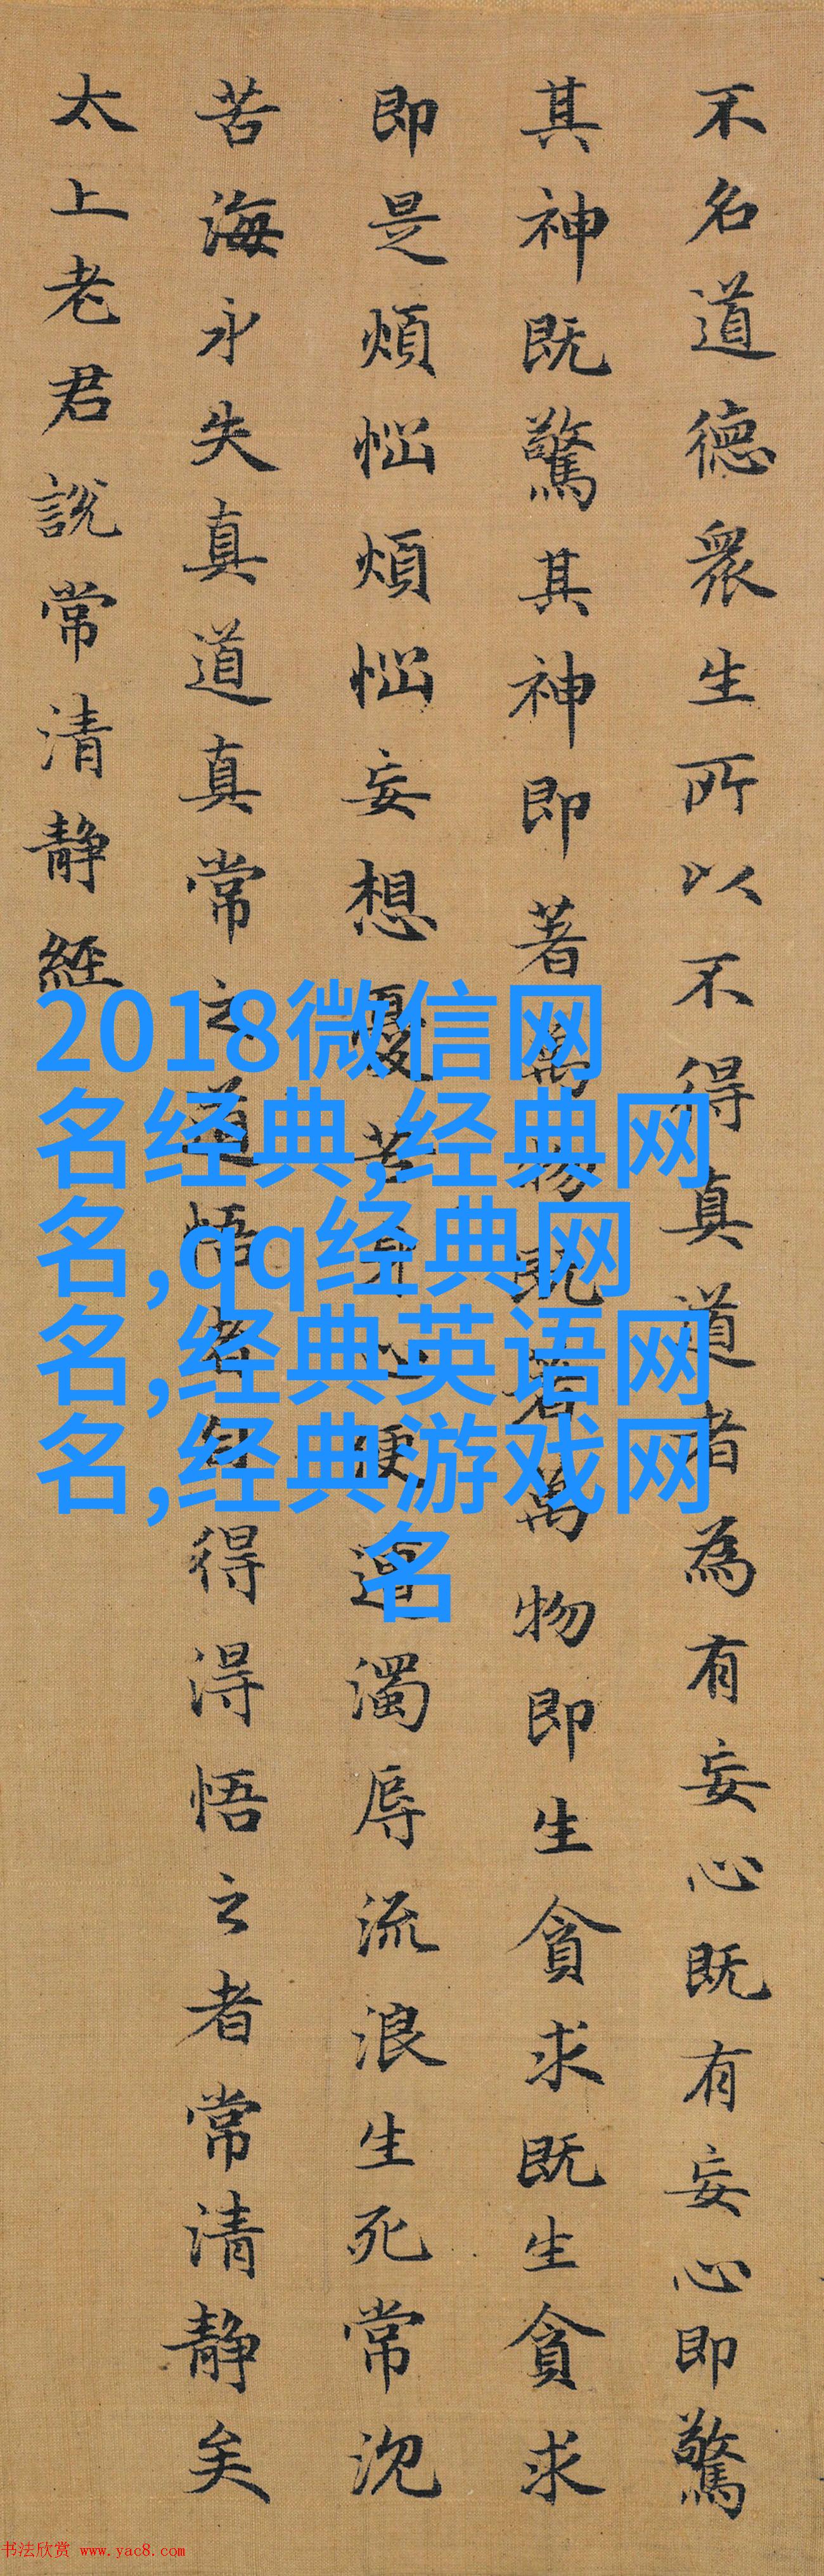 不名道德衆生所以不得真道者為有妄心既有妄心即驚
其神既驚其神即著萬物既著萬物即生貪求既生貪求
即是煩惱煩惱妄想憂苦身心便遭濁辱流浪生死常沉
苦海永失真道真常之道悟者自得得悟之者常清靜矣
太上老君說常清靜經
2018微信网
名经典,经典网
名,qq经典网
名,经典英语网
名,经典游戏网
名
书法欣赏 www.yac8.com